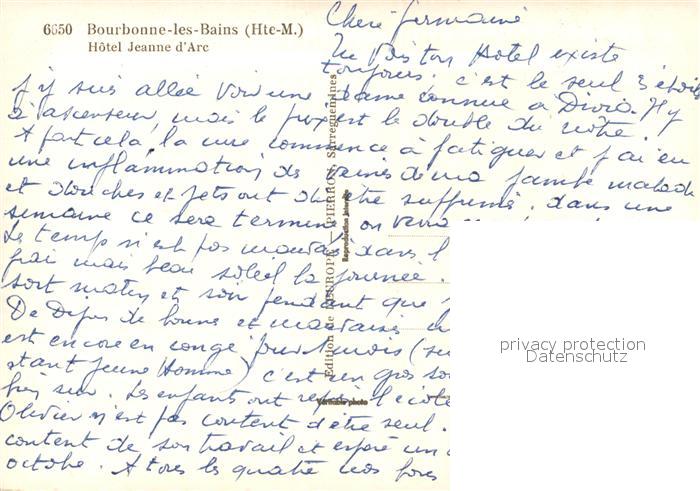 6650 Bourbonne-les-Bains (Hte-M.)
Hôtel Jeanne d'Arc
Chère Germaine
Tu vois ton Hotel existe
toujours. c'est le seul 3 étoiles
j'y suis allée voir une dame connue à Divio. Il y
a ascenseur, mais le prix est le double du nôtre.
A part cela, la cure commence à fatiguer et j'ai eu
une inflammation de veines de ma jambe malade
et douches et jets ont dû être supprimés. dans une
semaine ce sera terminé, on verra
Le temps n'est pas mauvais dans l
frais mais beau soleil la journée.
sort matin et soir pendant que
De Dijon de bonnes et mauvaises
est encore en congé pour mois (
étant jeune homme) c'est un gros
bien sûr. Les enfants ont repris l'école
Olivier n'est pas content d'être seul.
content de son travail et espère un
octobre. A tous les quatre nos bons
Edition de l'EUROPE - PIERRON, Sarreguemines
Reproduction interdite
Véritable photo
privacy protection
Datenschutz